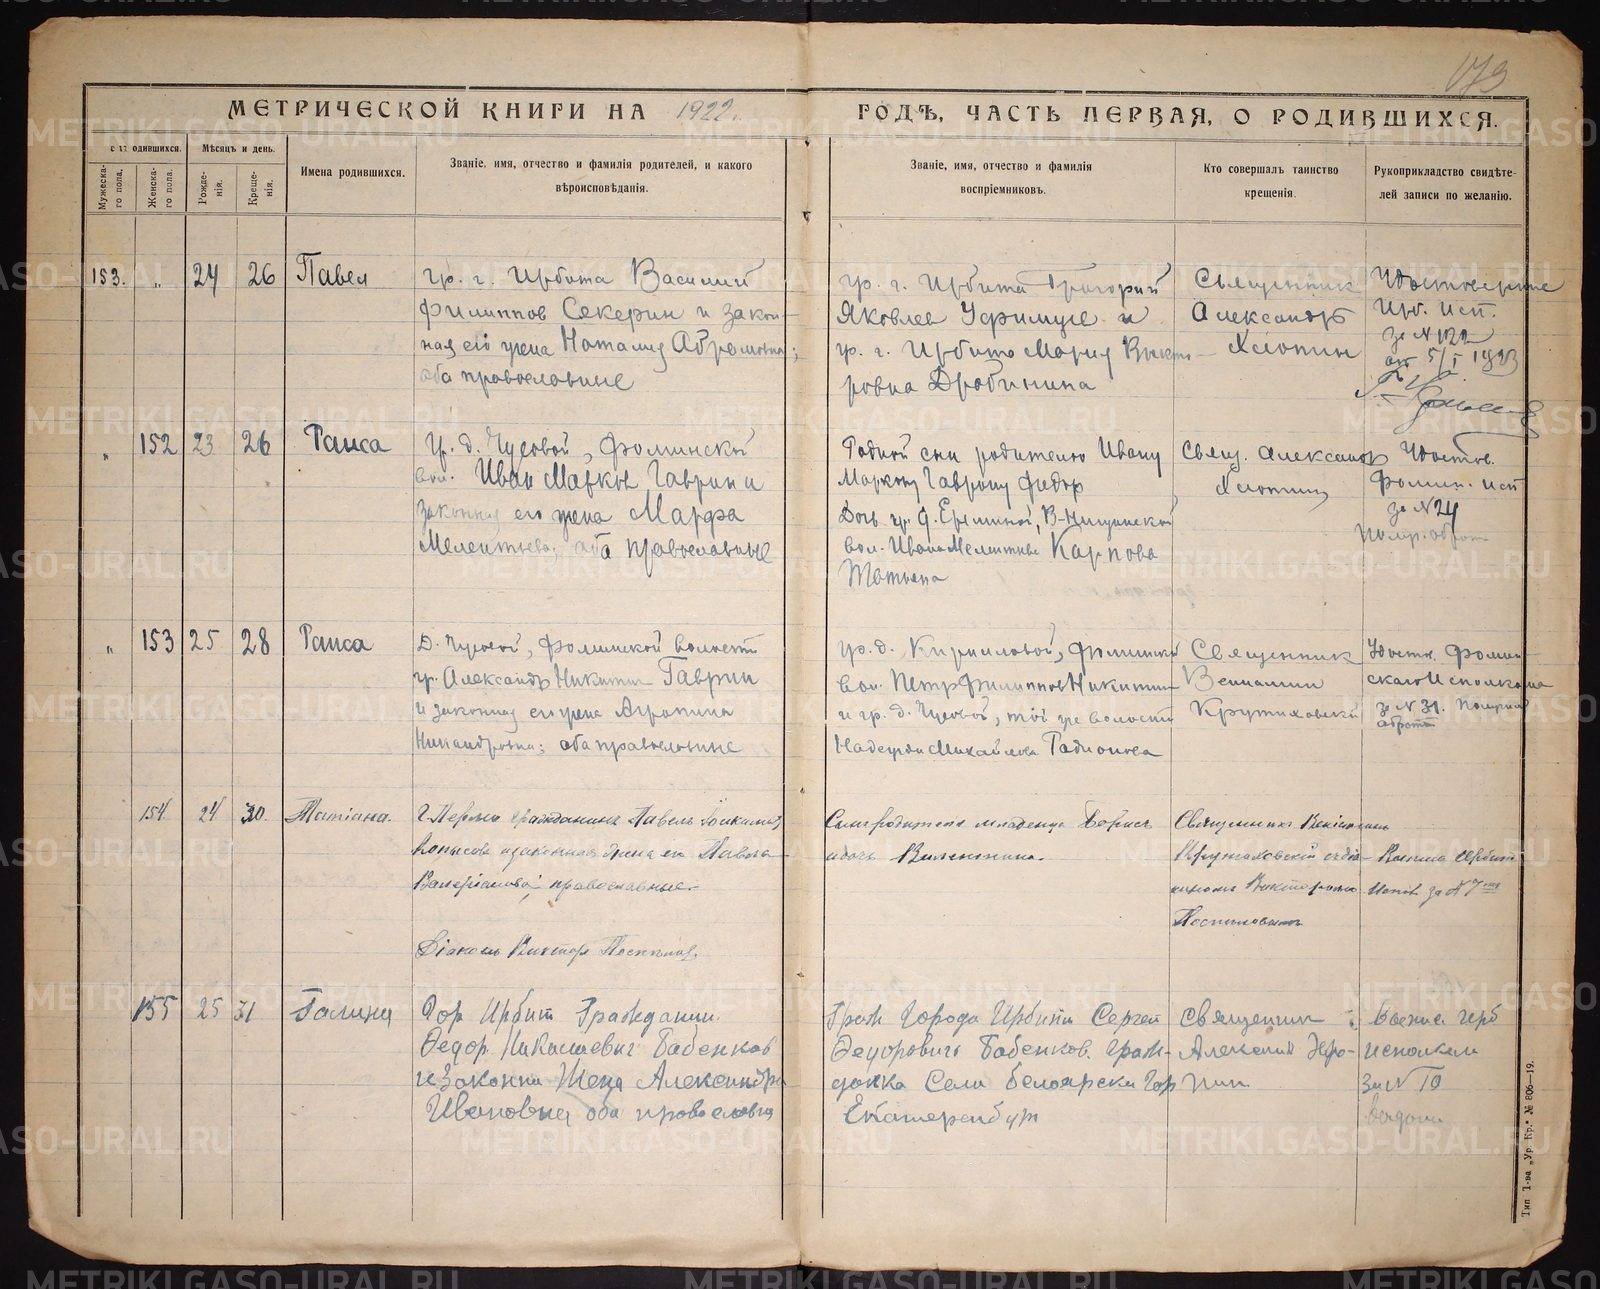 173
МЕТРИЧЕСКОЙ КНИГИ НА 1922 г. ГОДЪ, ЧАСТЬ ПЕРВАЯ, О РОДИВШИХСЯ.
одившихся.
Мѣсяцъ и день.
Мужеска-
го пола.
Женска-
го пола.
Рожде-
нія.
Креще-
нія.
Имена родившихся.
Званіе, имя, отчество и фамилія родителей, и какого
вѣроисповѣданія.
Званіе, имя, отчество и фамилія
воспріемниковъ.
Кто совершалъ таинство
крещенія.
Рукоприкладство свидѣте-
лей записи по желанію.
153. „ 24 26 Павел
гр. г. Ирбита Василий
Филиппов Секерин и закон-
ная его жена Наталия Абрамовна;
оба православные
гр. г. Ирбита Григорий
Яковлев Уфимцев и
гр. г. Ирбита Мария Викто-
ровна Дробинина
Священник
Александр
Хлопин
Ирб. исп.
за № 122
от 5/I 1923
„ 152 23 26 Раиса
Гр. д. Чусовой, Фоминской
вол. Иван Марков Гаврин и
законная его жена Марфа
Мелентьева, оба православные
Родной сын родителю Ивану
Маркову Гаврину Федор
Дочь гр. д. Ереминой, В-Ницинской
вол. Ивана Мелентьева Карпова
Татьяна
Свящ. Александр
Хлопин
Удостов.
Фомин. исп
за № 24
„ 153 25 28 Раиса
Д. Чусовой, Фоминской волости
гр. Александр Никитин Гаврин
и законная его жена Агропина
Никандровна; оба православные
гр. д. Кирилловой, Фоминской
вол. Петр Филиппов Никитин
и гр. д. Чусовой, той же волости
Надежда Михайлова Родионова
Священник
Вениамин
Крутиховский
Удост. Фомин-
скаго Исполкома
за № 31.
154. 24 30. Татіана.
Г. Перми гражданинъ Павелъ
Копысовъ и законная жена его Павла
Валеріанова, православные.
Діаконъ Викторъ Поспѣловъ.
Сынъ родителя младенца Борисъ
и дочь Валентина.
Священникъ Веніаминъ
Крутиховскій съ діа-
кономъ Викторомъ
Поспѣловымъ
155 25 31 Галина
Гор Ирбит Гражданин
Федор Николаевич Бабенков
и Законна Жена Александра
Ивановна оба православны
Граж Города Ирбита Сергей
Федорович Бабенков. Граж-
данка Села Белоярска Гор
Екатеренбург
Священник
Алексей
исполком
за № 10
Тип Т-ва „Ур Кр.“ № 806—19.
METRIKI.GASO-URAL.RU